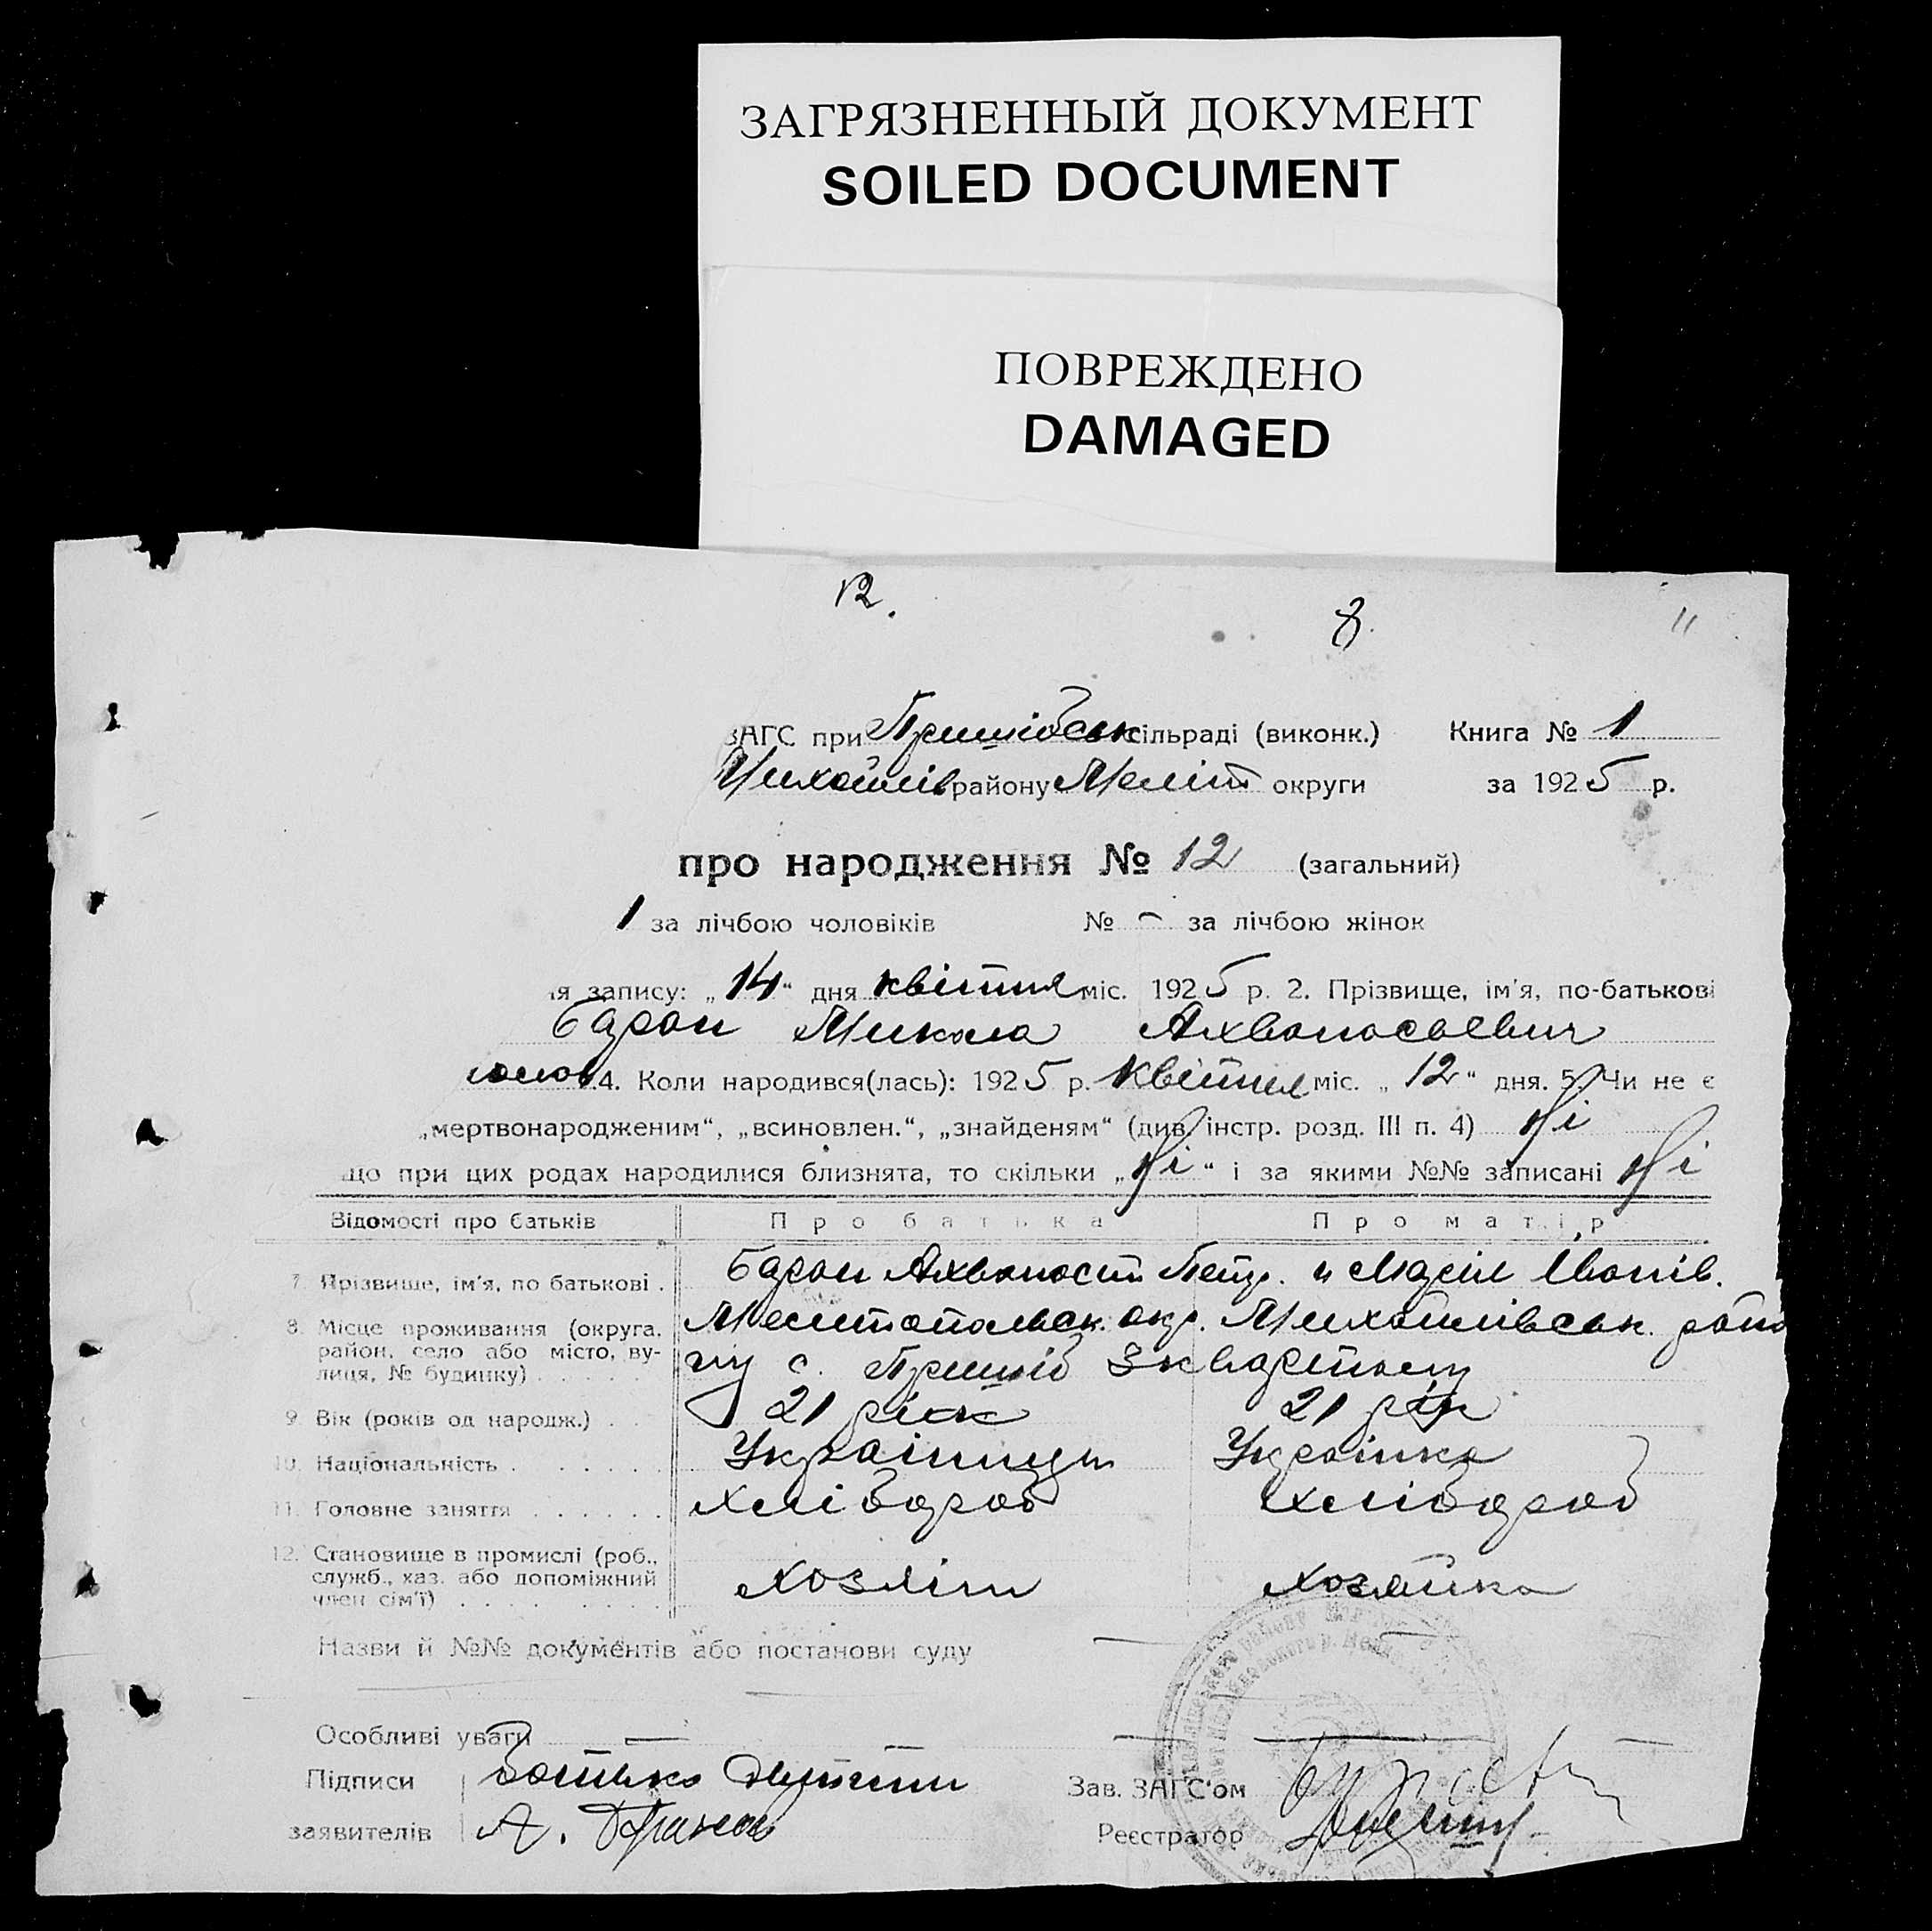 ЗАГРЯЗНЕННЫЙ ДОКУМЕНТ
SOILED DOCUMENT
ПОВРЕЖДЕНО
DAMAGED
12. 8. 11
ЗАГС при Пришибськ сільраді (виконк.) Книга № 1
Михайлів району Меліт округи за 1925 р.
про народження № 12 (загальний)
1 за лічбою чоловіків № – за лічбою жінок
я запису: „14“ дня квітня міс. 1925 р. 2. Прізвище, ім'я, по-батькові
Барон Микола Ахванасаевич
4. Коли народився(лась): 1925 р. Квітня міс. „12“ дня. 5. Чи не є
„мертвонародженим“, „всиновлен.“, „знайденям“ (див. інстр. розд. III п. 4) Ні
що при цих родах народилися близнята, то скільки „Ні“ і за якими №№ записані Ні
Відомості про батьків Про батька Про матір
7. Прізвище, ім'я, по батькові . Барон Ахванаст Петр. и Марія Іванів.
8. Місце проживання (округа, Мелитопольск. окр. Михайлівськ. райо
район, село або місто, ву-
лиця, № будинку) . . . . . ну с. Пришиб
9. Вік (років од народж.) . . 21 рік 21 рік
10. Національність . . . . . . Українець Українка
11. Головне заняття . . . . . . Хлібороб хлібороб
12. Становище в промислі (роб., 
служб., хаз. або допоміжний Хозяін хозяйка
член сім'ї) . . . . . . . .
Назви й №№ документів або постанови суду — —
Особливі уваги — — —
Підписи Батько дитини Зав. ЗАГС'ом
заявителів А. Барон Реєстратор